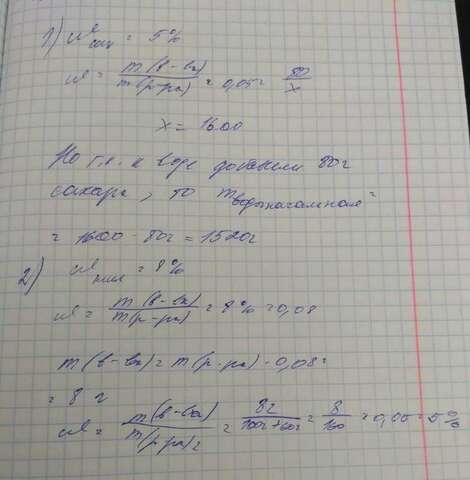 1) ω сах = 5%
ω = m(в-ва) / m(р-ра) = 0,05 = 80 / x
x = 1600
Но т.к. к воде добавили 80г
сахара, то m воды начальная =
= 1600 - 80г = 1520г
2) ω = 8%
ω = m(в-ва) / m(р-ра) = 8% = 0,08
m(в-ва) = m(р-ра) · 0,08 =
= 8 г
ω = m(в-ва) / m(р-ра)2 = 8г / 100г+60г = 8 / 160 = 0,05 = 5%